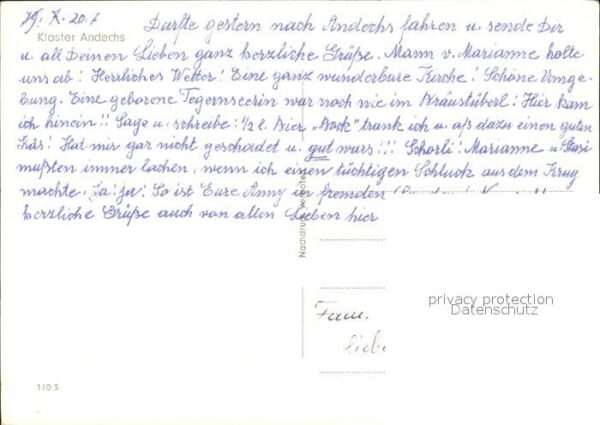 Durfte gestern nach Andechs fahren u. sende Dir
Kloster Andechs
u. all Deinen Lieben ganz herzliche Grüße. Mann v. Marianne holte
uns ab! Herrliches Wetter! Eine ganz wunderbare Kirche! Schöne Umge-
bung. Eine geborene Tegernseerin war noch nie im Bräustüberl! Hier kam
ich hinein!! Sage u. schreibe: 1/2 l. Bier "Bock" trank ich u. aß dazu einen guten
Käs! Hat mir gar nicht geschadet u. gut wars!!! Marianne u.
mußten immer lachen, wenn ich einen tüchtigen Schluck aus dem Krug
machte. Ja! ja! So ist Eure Anny in fremden
herzliche Grüße auch von allen Lieben hier
Fam.
privacy protection
Datenschutz
110-5